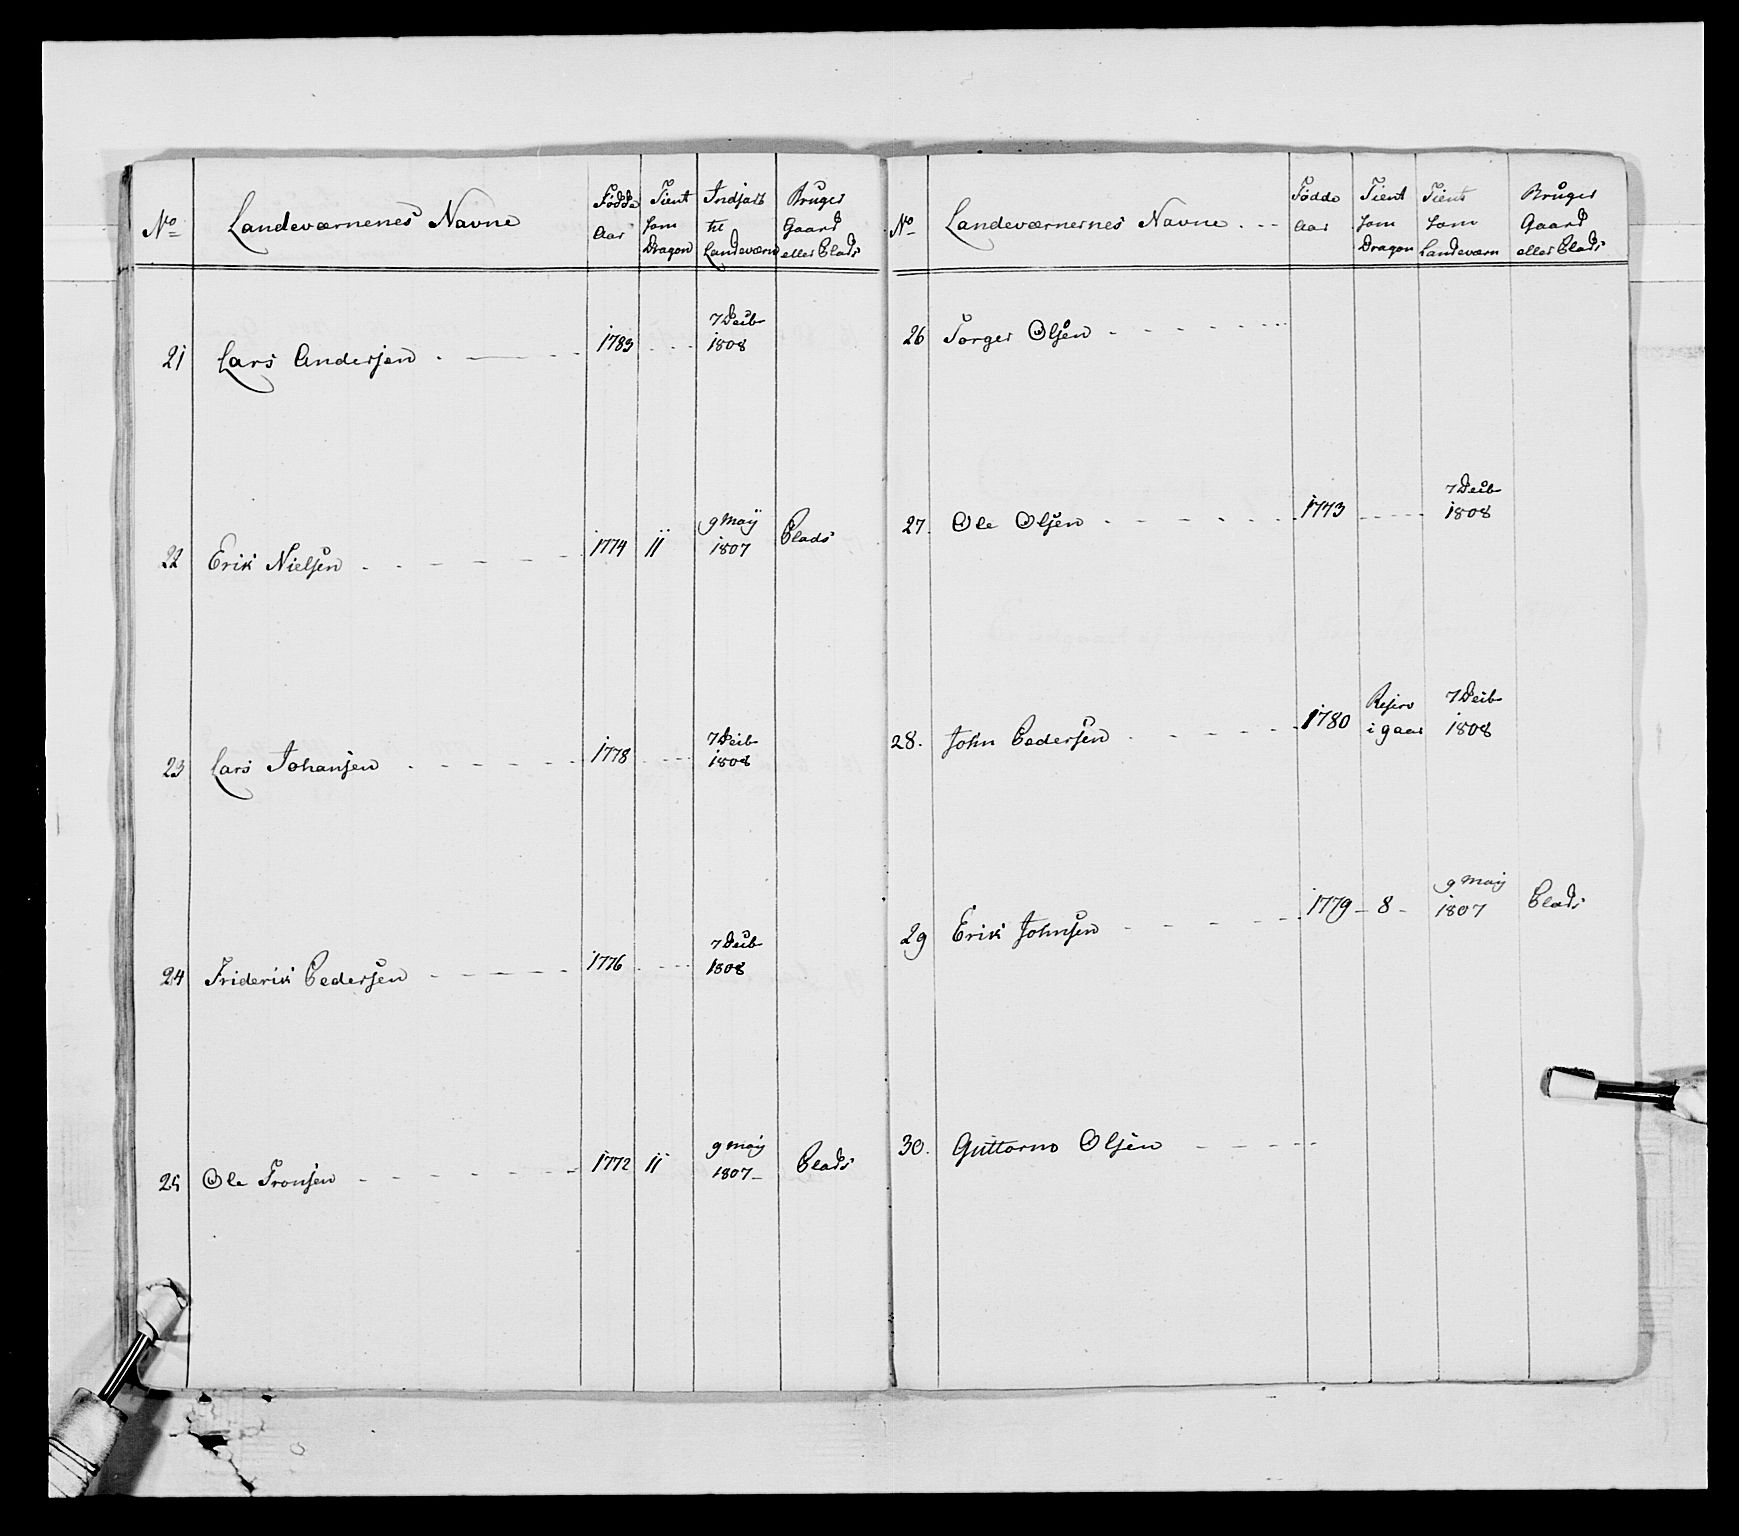 No
Landeværnenes Navne
Födde Aar
Tient som Dragon
Indsadt til Landeværn
Bruger Gaard eller Plads
21 Lars Andersen 1783 7 Decbr 1808
22 Erik Nielsen 1774 11 9 Maÿ 1807 Plads
23 Lars Johansen 1778 7 Decbr 1808
24 Friderik Pedersen 1776 7 Decbr 1808
25 Ole Tronsen 1772 11 9 Maÿ 1807 Plads
No
Landeværnernes Navne
Födde Aar
Tient som Dragon
Tient som Landeværn
Bruger Gaard eller Plads
26 Torger Olsen
27. Ole Olsen 1773 7 Decbr 1808
28. John Pedersen 1780 Reserv i 9 aar 7 Decbr 1808
29 Erik Johnsen 1779 8 9 Maÿ 1807 Plads
30. Guttorm Olsen